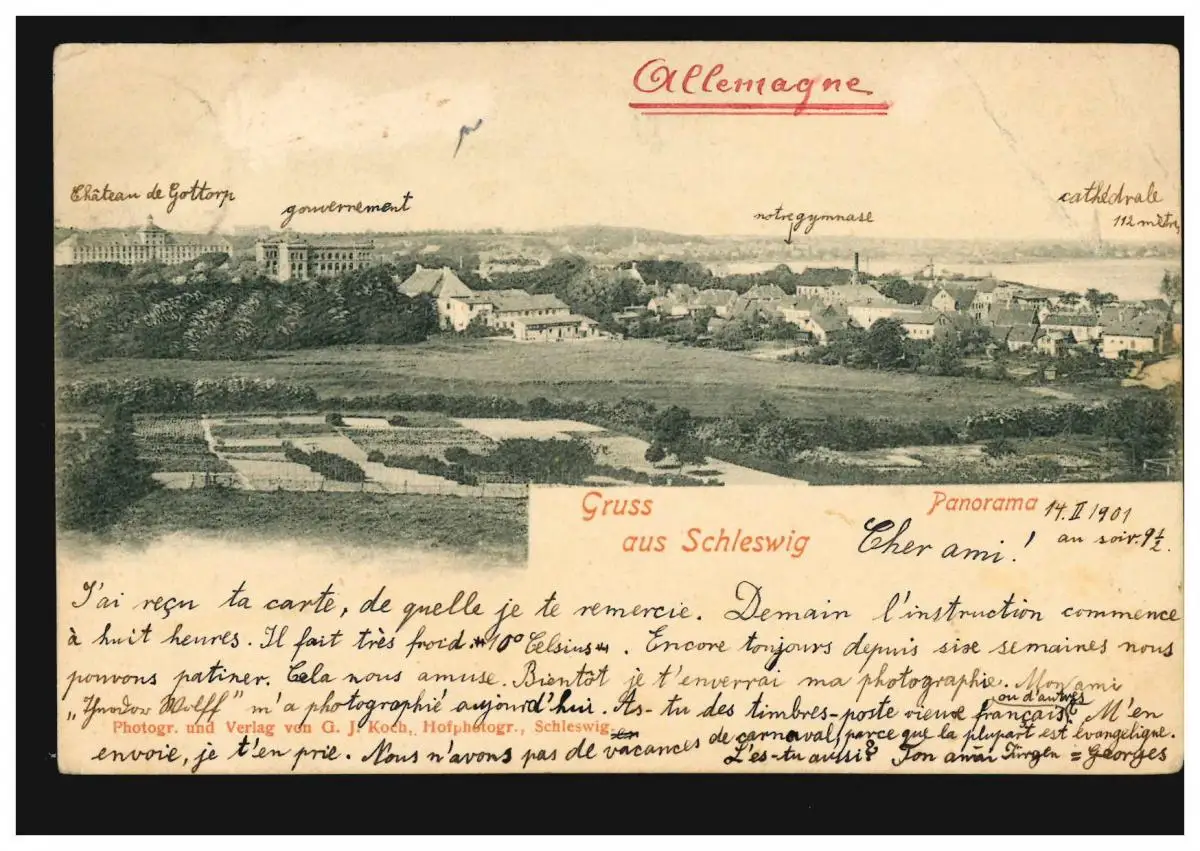 Allemagne
Château de Gottorp
gouvernement
notre gymnase
cathédrale
112 mètr.
Gruss
aus Schleswig
Panorama
14. II 1901
au soir. 9 1/2.
Cher ami!
J'ai reçu ta carte, de quelle je te remercie. Demain l'instruction commence
à huit heures. Il fait très froid „10° Celsius“. Encore toujours depuis sixe semaines nous
pouvons patiner. Cela nous amuse. Bientôt je t'enverrai ma photographie. Mon ami
„Theodor Wolff" m'a photographié aujourd'hui. As-tu des timbres-poste vieux français (ou d'autres)? M'en
Photogr. und Verlag von G. J. Koch, Hofphotogr., Schleswig.
envoie, je t'en prie. Nous n'avons pas de vacances de carnaval, parce que la plupart est évangelique.
L'es-tu aussi? Ton ami Jürgen = Georges